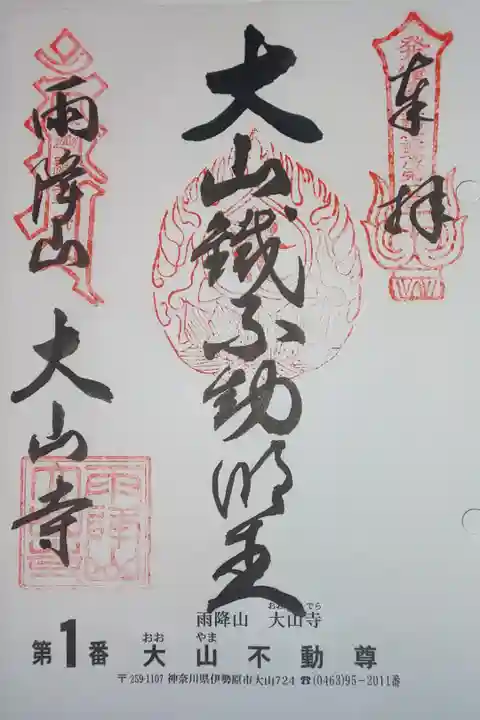 奉拝
大山鐵不動明王
雨降山 大山寺
雨降山
雨降山 大山寺
おおやまでら
第1番 大山不動尊
おお やま
〒259-1107 神奈川県伊勢原市大山724 ☎(0463)95-2011番